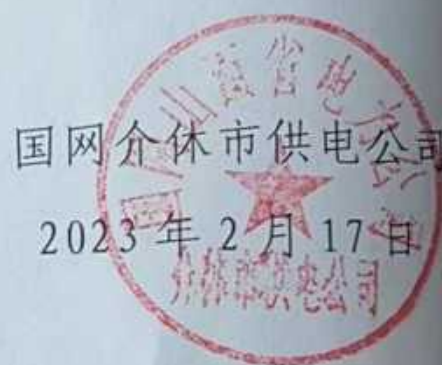 国网介休市供电公司
2023 年 2 月 17 日
介休市供电公司